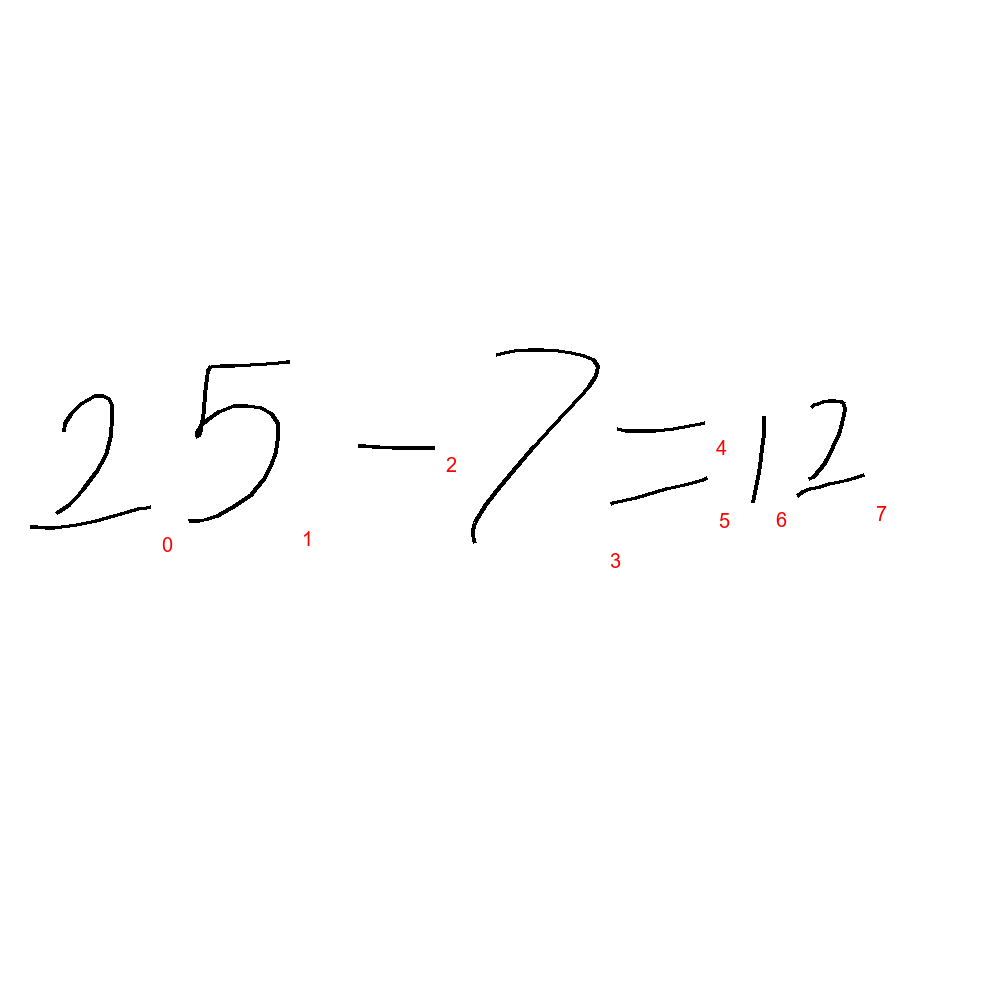 25-7=12
0 1 2 3 4 5 6 7